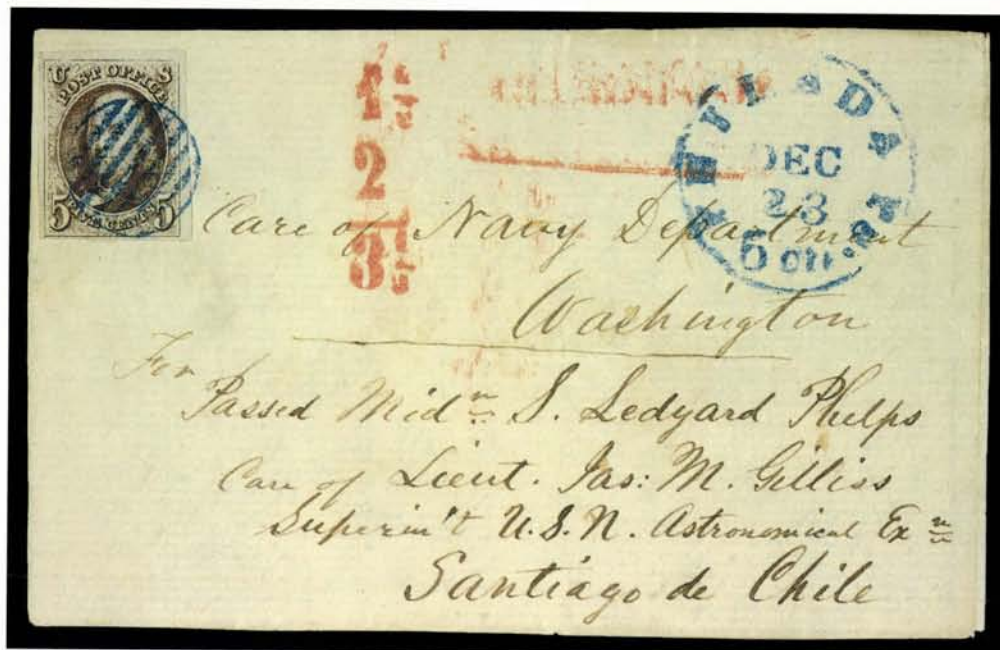 U S
POST OFFICE
5 FIVE CENTS 5
1
2
3
PHILADA Pa.
DEC
23
5 cts.
Care of Navy Department
Washington
For
Passed Midn S. Ledyard Phelps
Care of Lieut. Jas: M. Gilliss
Superin't U.S.N. Astronomical Exn
Santiago de Chile